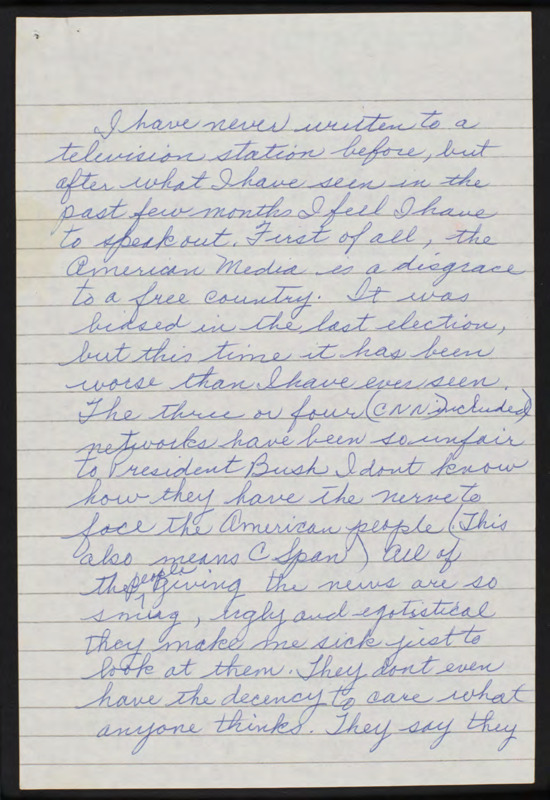 I have never written to a
television station before, but
after what I have seen in the
past few months I feel I have
to speak out. First of all, the
American Media is a disgrace
to a free country. It was
biased in the last election,
but this time it has been
worse than I have ever seen.
The three or four (CNN included)
networks have been so unfair
to President Bush I dont know
how they have the nerve to
face the American people (This
also means C Span) All of
the people giving the news are so
smug, ugly and egotistical
they make me sick just to
look at them. They dont even
have the decency to care what
anyone thinks. They say they